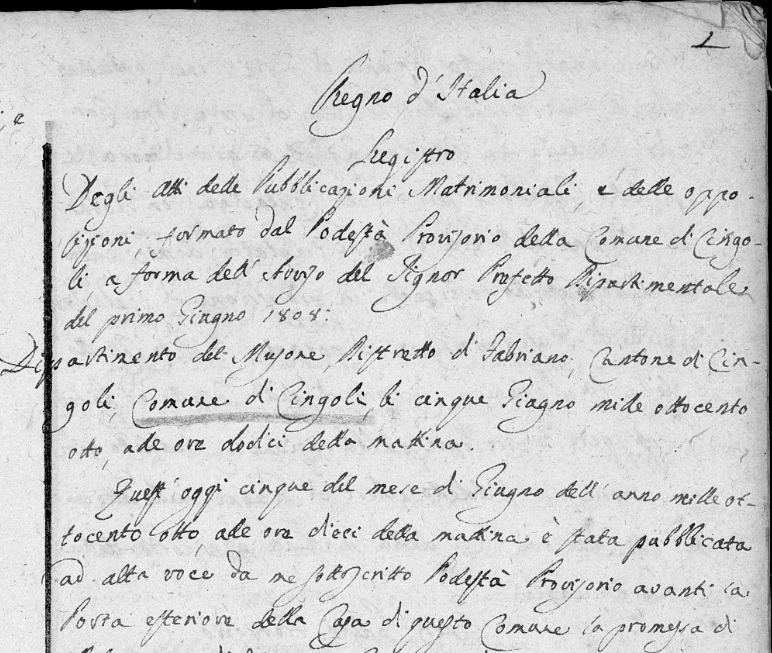 1
Regno d'Italia
Registro
Degli Atti delle Pubblicazioni Matrimoniali, e delle oppo-
sizioni, formato dal Podestà Provisorio della Comune di Cingo-
li a forma dell'Avviso del Signor Prefetto Dipartimentale
del primo Giugno 1808:
Dipartimento del Musone, Distretto di Fabriano, Cantone di Cin-
goli, Comune di Cingoli, li cinque Giugno mille ottocento
otto, alle ore dodici della mattina.
Quest'oggi cinque del mese di Giugno dell'anno mille ot-
tocento otto alle ore dieci della mattina è stata pubblicata
ad alta voce da me sottoscritto Podestà Provisorio avanti la
Porta esteriore della Casa di questo Comune la promessa di